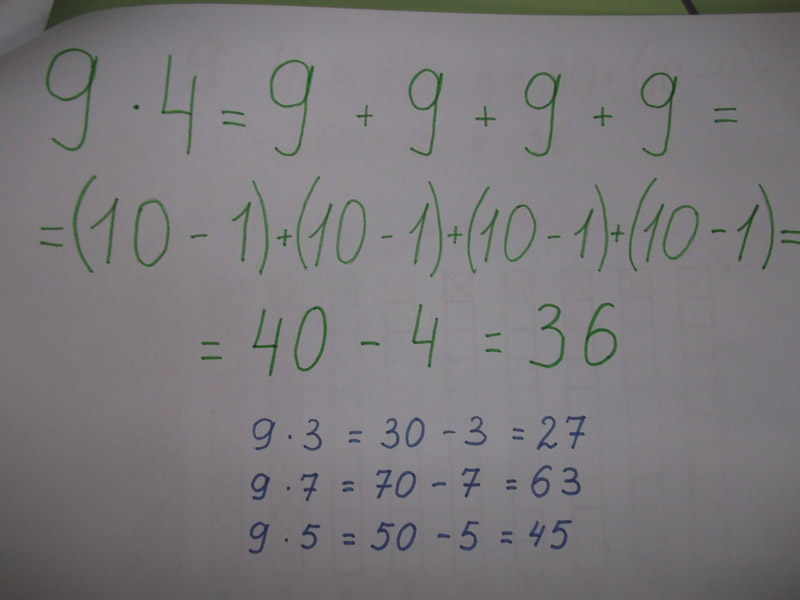 9 · 4 = 9 + 9 + 9 + 9 =
= (10 - 1) + (10 - 1) + (10 - 1) + (10 - 1) =
= 40 - 4 = 36
9 · 3 = 30 - 3 = 27
9 · 7 = 70 - 7 = 63
9 · 5 = 50 - 5 = 45